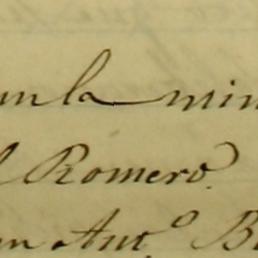 un la min
l Romero.
n Ant.º B